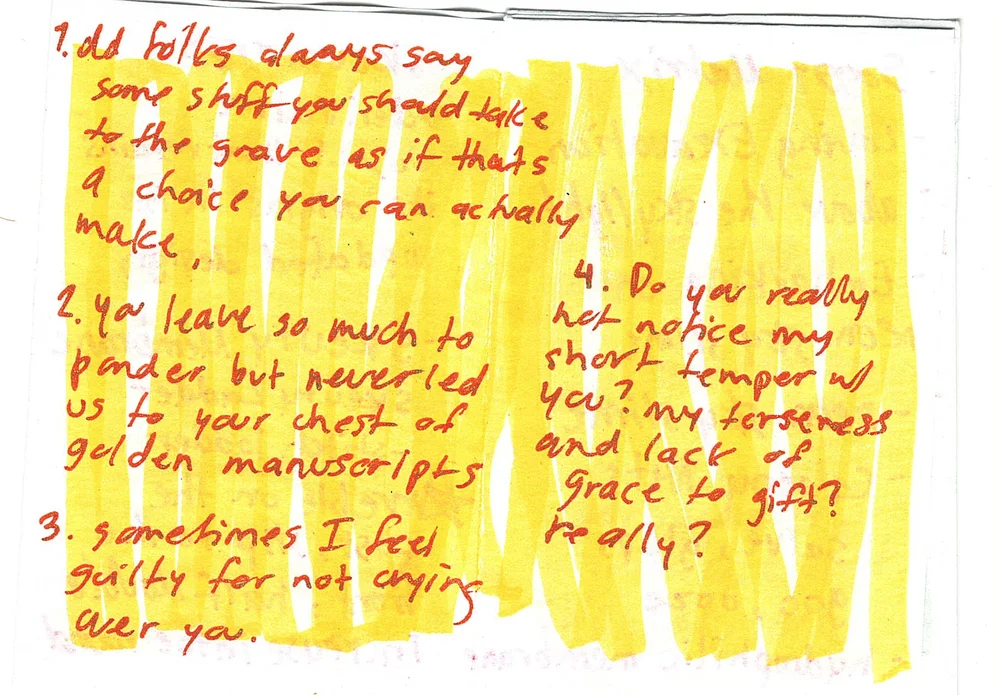 1. old folks always say
some stuff you should take
to the grave as if thats
a choice you can actually
make,
2. you leave so much to
ponder but never led
us to your chest of
golden manuscripts
3. sometimes I feel
guilty for not crying
over you.
4. Do you really
not notice my
short temper w/
you? my terseness
and lack of
grace to gift?
really?